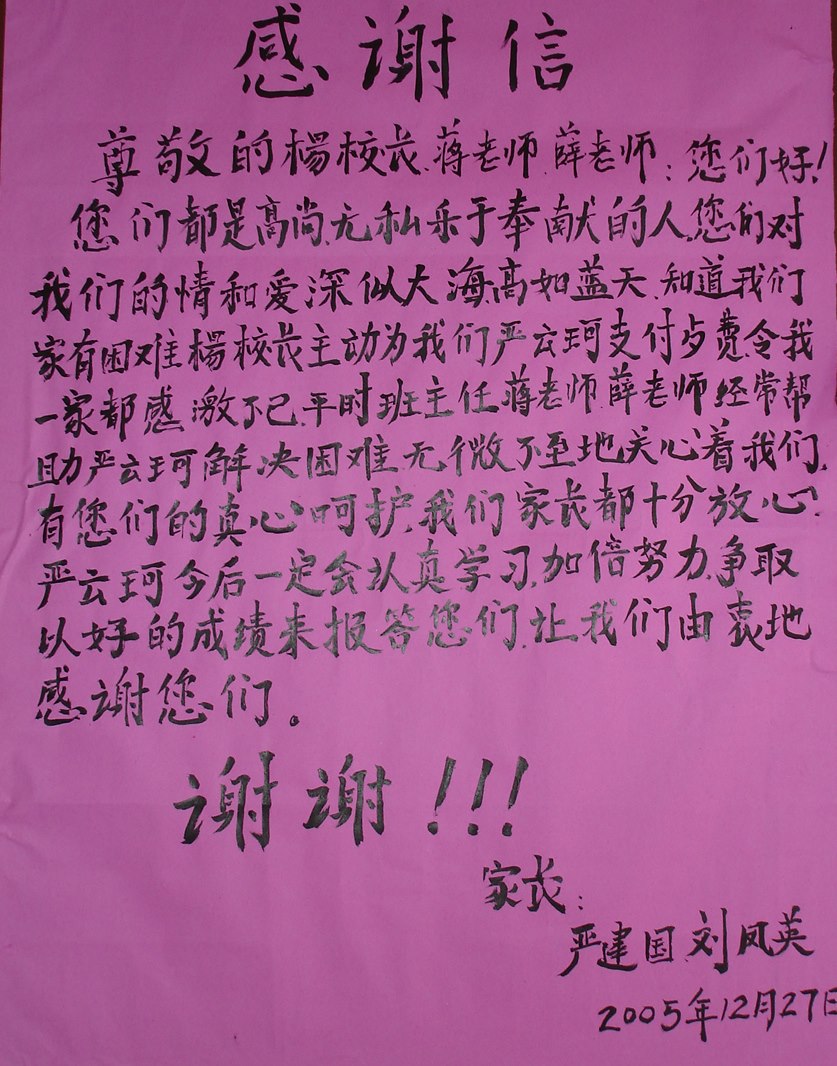 感谢信
尊敬的楊校长.蒋老师.薛老师：您们好！
您们都是高尚.无私乐于奉献的人.您们对
我们的情和爱深似大海高如蓝天.知道我们
家有困难楊校长主动为我们严云珂支付歺费.令我
一家都感激不已.平时班主任蒋老师薛老师经常帮
助严云珂解决困难无微不至地关心着我们.
有您们的真心呵护.我们家长都十分放心.
严云珂今后一定会认真学习.加倍努力.争取
以好的成绩来报答您们.让我们由衷地
感谢您们。
谢谢！！！
家长：
严建国.刘凤英
2005年12月27日